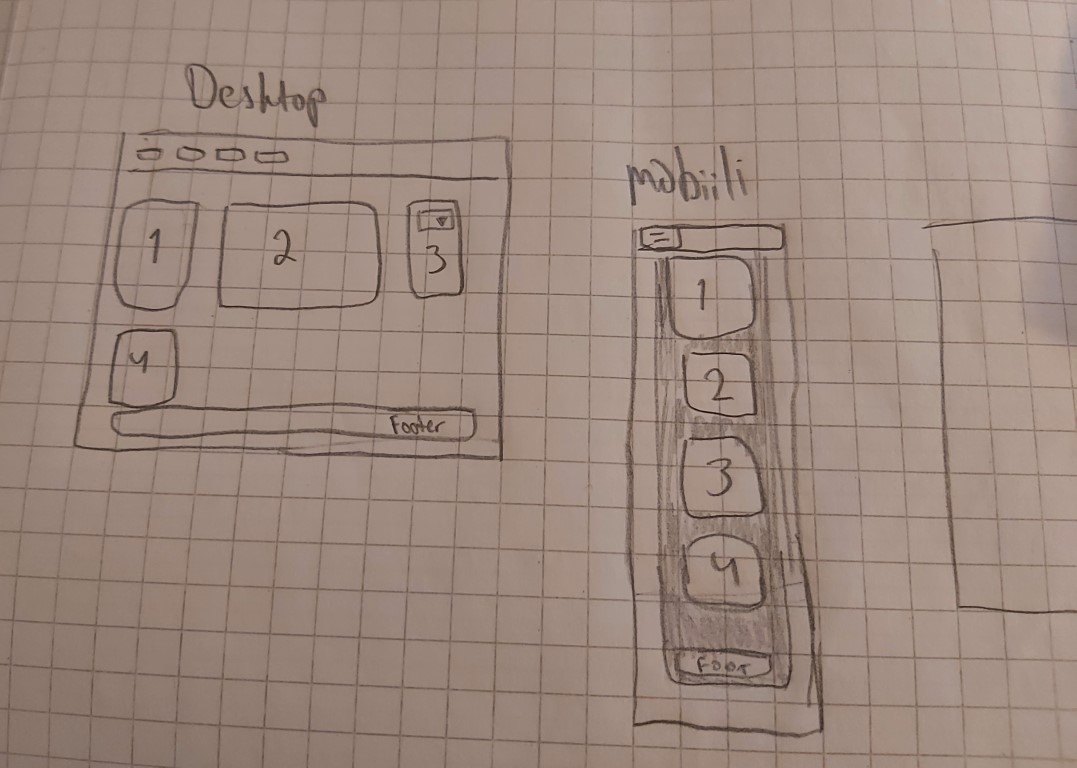 Desktop
1 2 3
4
Footer
mobiili
1
2
3
4
Foot